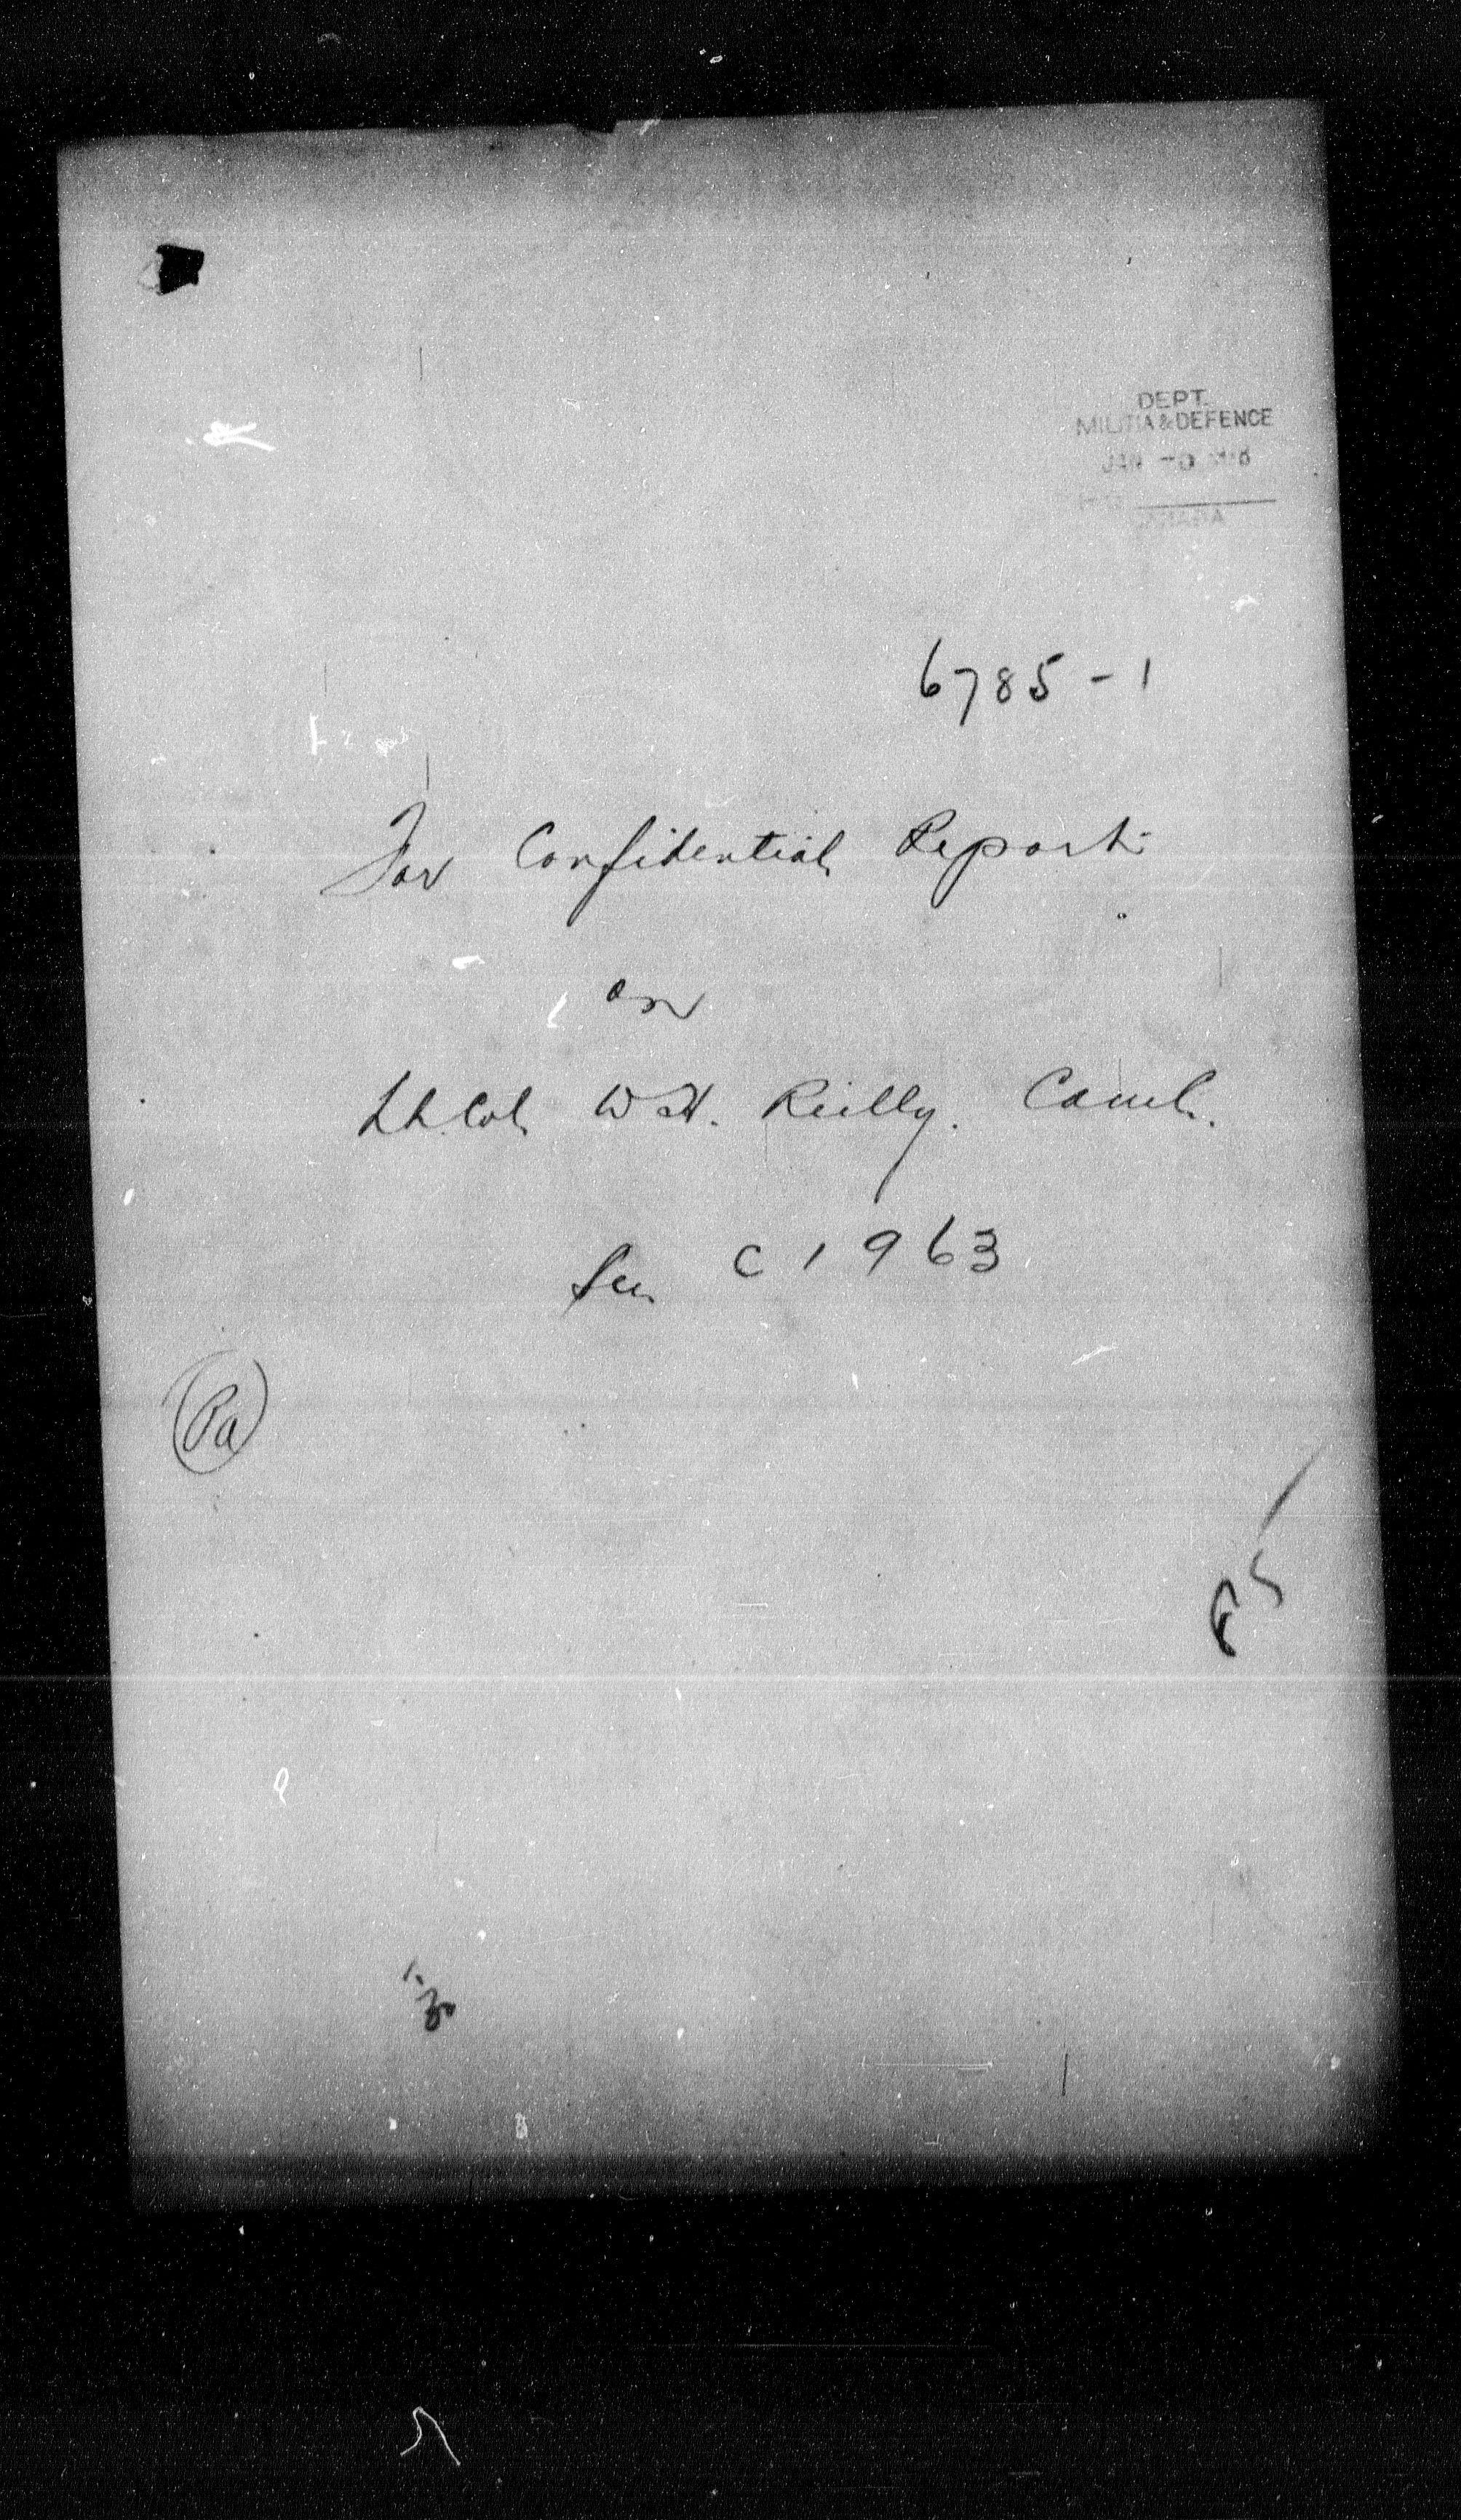 DEPT.
MILITIA & DEFENCE
JAN
CANADA
6785 - 1
For Confidential Report
on
Lt. Col. W. H. Reilly.
See C 1963
Pa